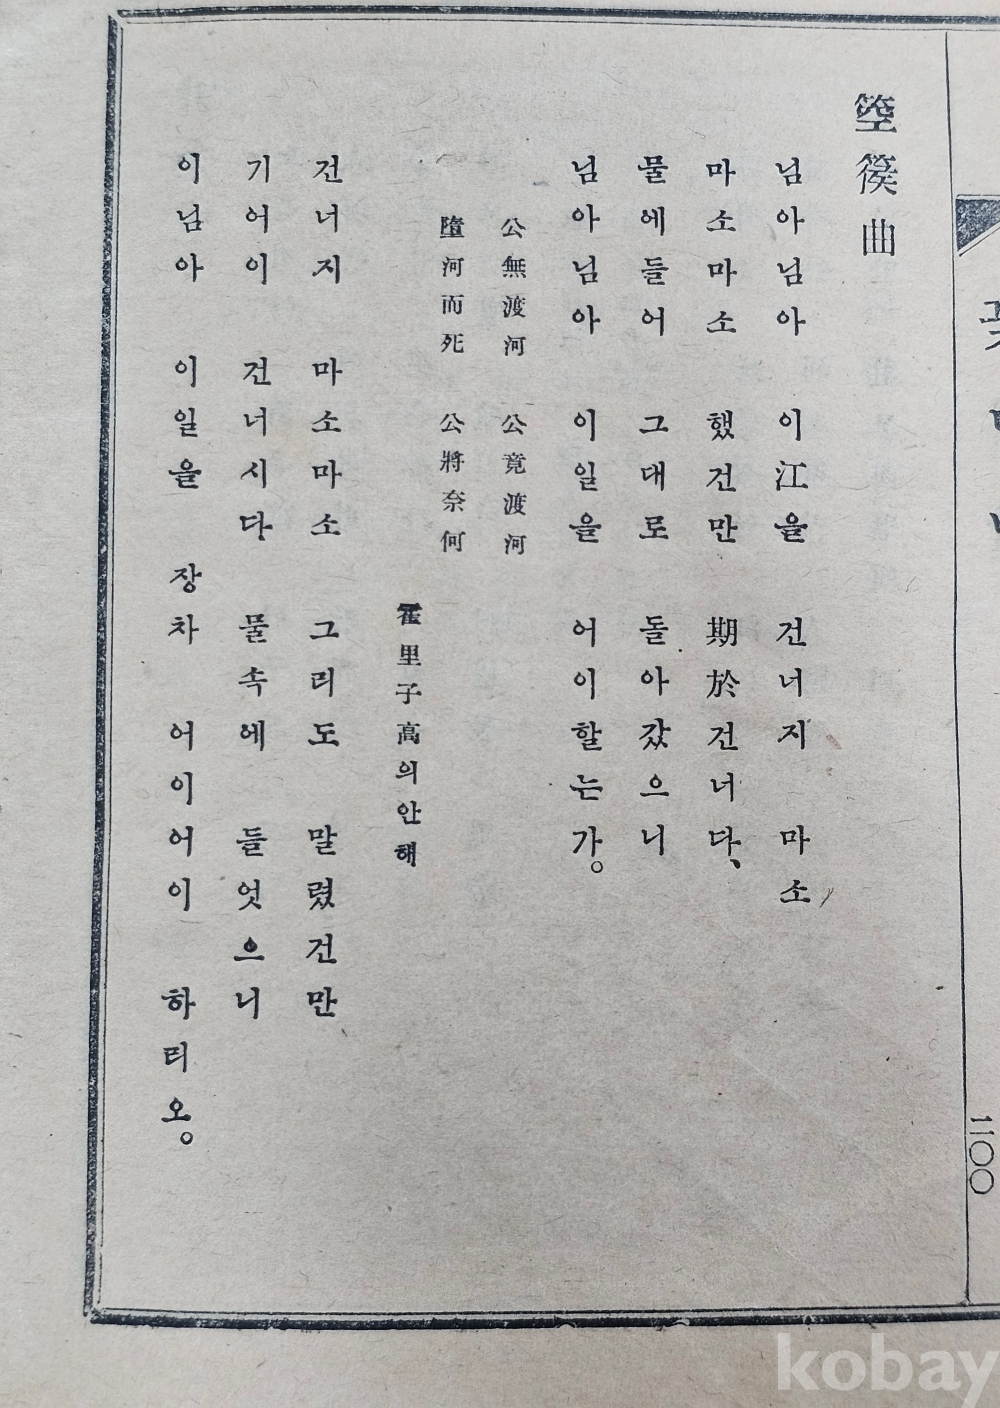 箜篌曲
님아님아 이江을 건너지 마소
마소마소 했건만 期於건너다、
물에들어 그대로 돌아갔으니
님아님아 이일을 어이할는가。
公無渡河 公竟渡河
墮河而死 公將奈何
霍里子高의안해
건너지 마소마소 그리도 말렸건만
기어이 건너시다 물속에 들엇으니
이님아 이일을 장차 어이어이 하리오。
二〇〇
kobay